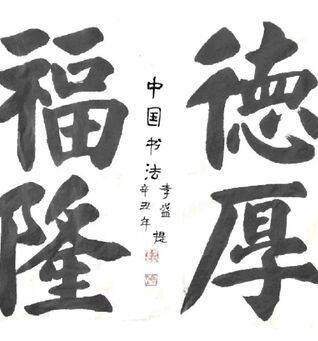 德厚
福隆
中国书法
李盛提
辛丑年